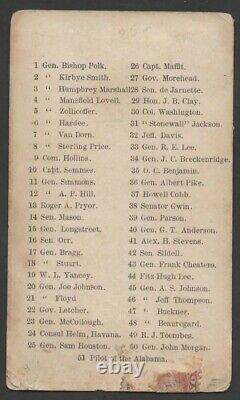 1 Gen. Bishop Polk.
2 " Kirbye Smith.
3 " Humphrey Marshall
4 " Mansfield Lovell.
5 " Zollicoffer.
6 " Hardee.
7 " Van Dorn.
8 " Sterling Price.
9 Com. Hollins.
10 Capt. Semmes.
11 Gen. Simmons.
12 " A. P. Hill.
13 Roger A. Pryor.
14 Sen. Mason.
15 Gen. Longstreet.
16 Sen. Orr.
17 Gen. Bragg.
18 " Stuart.
19 W. L. Yancey.
20 Gen. Joe Johnson.
21 " Floyd
22 Gov. Letcher.
23 Gen. McCullough.
24 Consul Helm, Havana.
25 Gen. Sam Houston.
26 Capt. Maffit.
27 Gov. Morehead.
28 Sen. de Jarnette.
29 Hon. J. B. Clay.
30 Col. Washington.
31 "Stonewall" Jackson.
32 Jeff. Davis.
33 Gen. R. E. Lee.
34 Gen. J. C. Breckenridge.
35 O. C. Benjamin.
36 Gen. Albert Pike.
37 Howell Cobb.
38 Senator Gwin.
39 Gen. Parson.
40 Gen. G. T. Anderson.
41 Alex. H. Stevens.
42 Sen. Slidell.
43 Gen. Frank Cheatem.
44 Fitz Hugh Lee.
45 Gen. A. S. Johnson.
46 " Jeff Thompson.
47 " Buckner.
48 " Beauregard.
49 R. J. Toombes.
50 Gen. John Morgan.
51 Pilot of the Alabama.